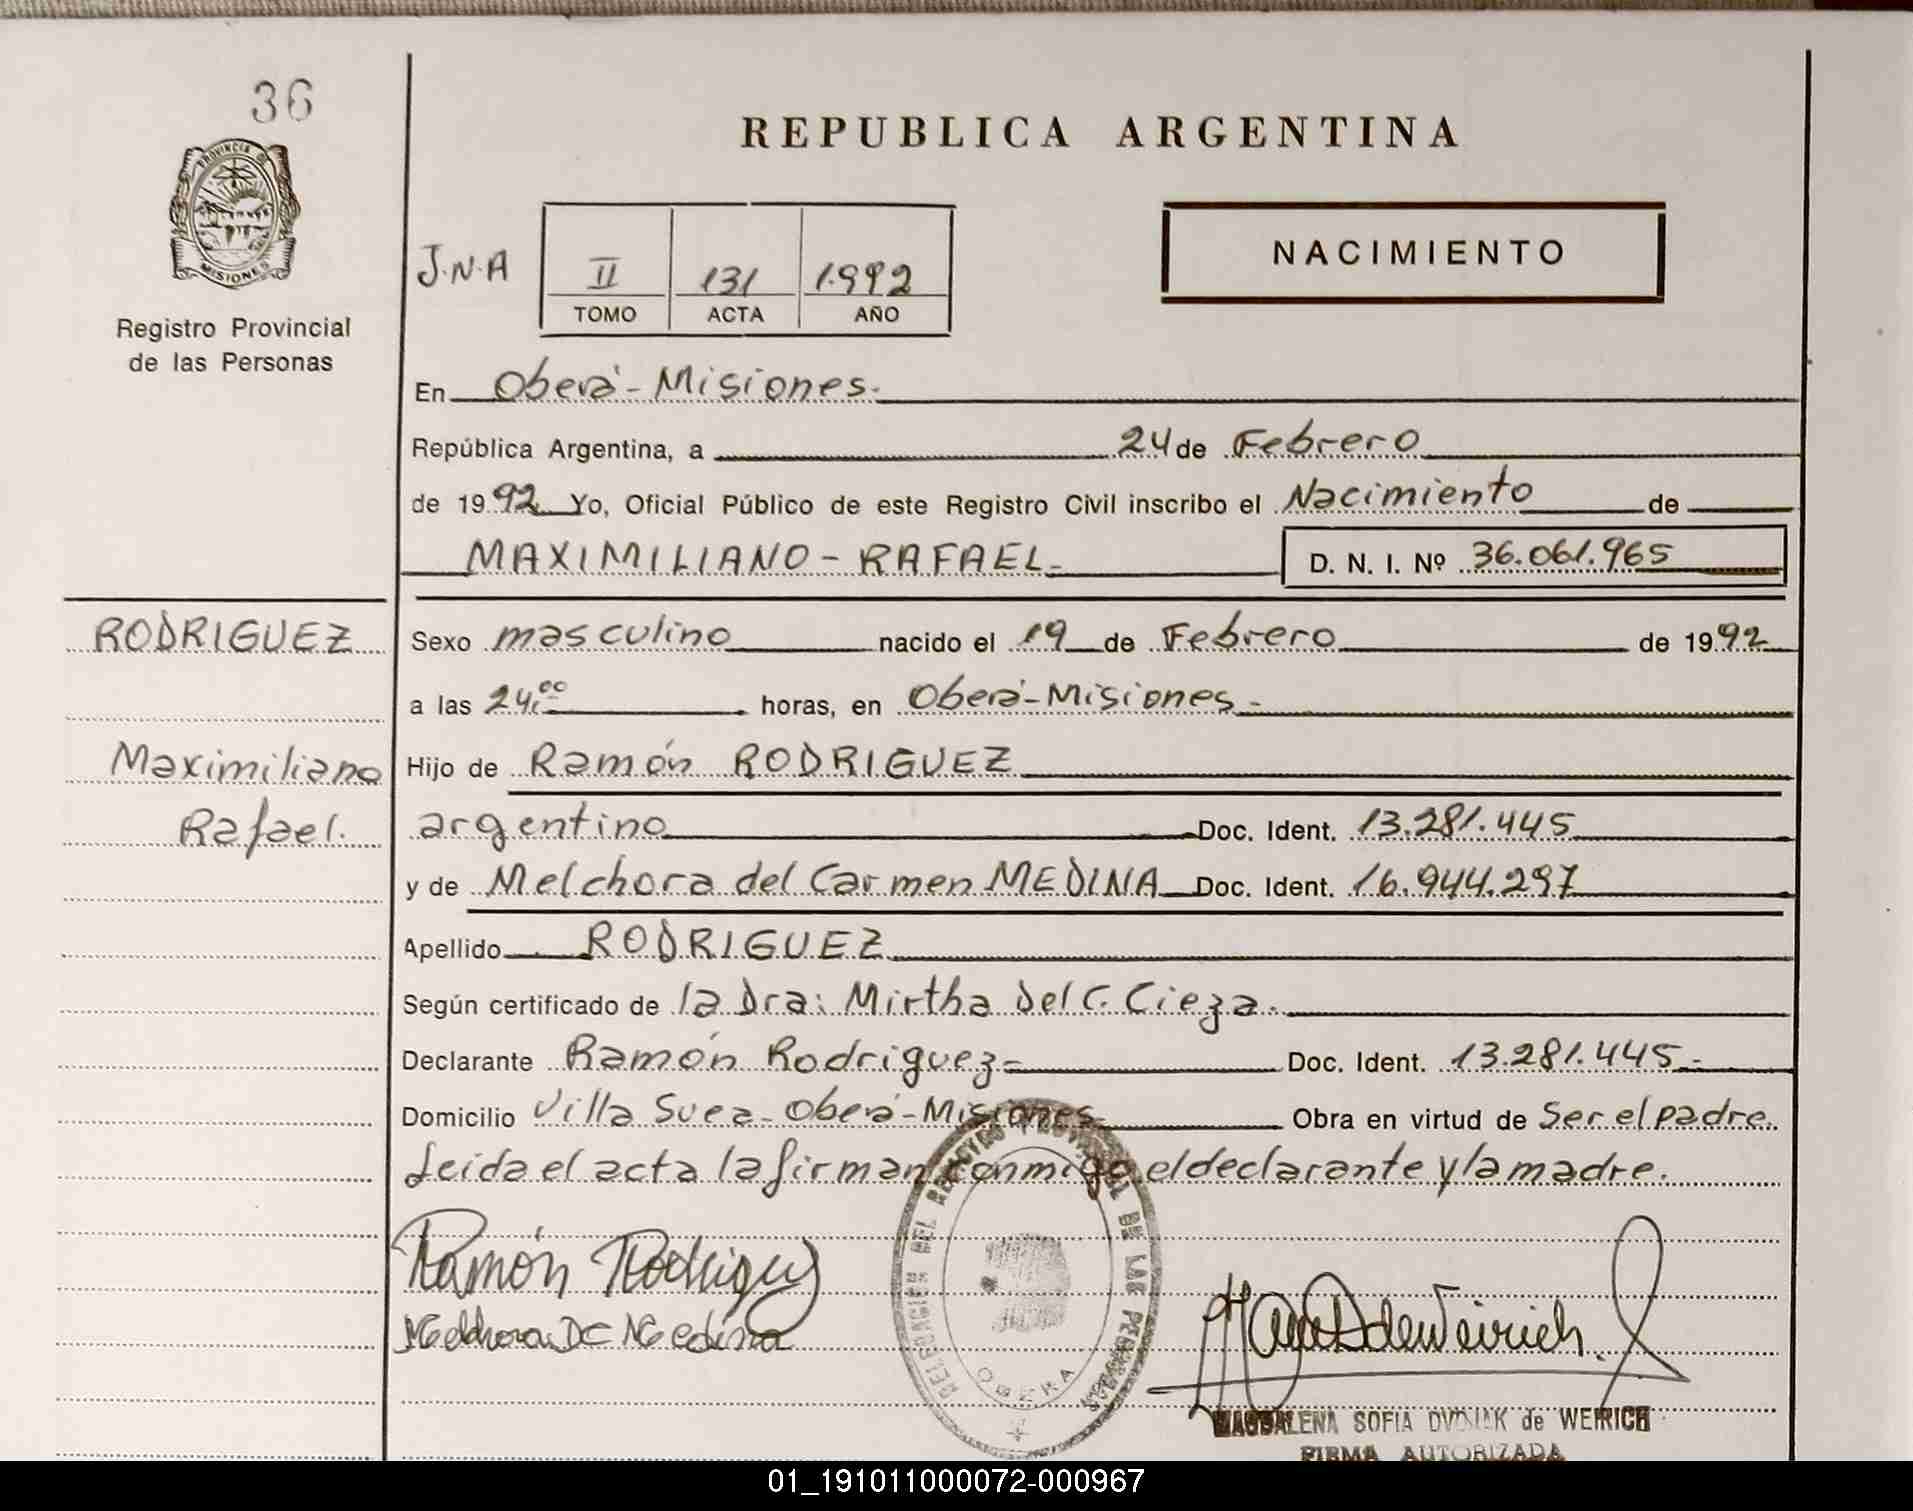 36
PROVINCIA DE
MISIONES
Registro Provincial
de las Personas
REPUBLICA ARGENTINA
NACIMIENTO
J.N.A
II 131 1.992
TOMO ACTA AÑO
En Oberá - Misiones.
República Argentina, a 24 de Febrero
de 1992 Yo, Oficial Público de este Registro Civil inscribo el Nacimiento de
MAXIMILIANO - RAFAEL - D. N. I. Nº 36.061.965
RODRIGUEZ
Maximiliano
Rafael.
Sexo masculino nacido el 19 de Febrero de 1992
a las 24:00 horas, en Oberá - Misiones -
Hijo de Ramón RODRIGUEZ
argentino Doc. Ident. 13.281.445
y de Melchora del Carmen MEDINA Doc. Ident. 16.944.297
Apellido RODRIGUEZ
Según certificado de la Dra: Mirtha Del C. Cieza.
Declarante Ramón Rodriguez - Doc. Ident. 13.281.445 -
Domicilio Villa Suea - Oberá - Misiones Obra en virtud de Ser el padre.
Leida el acta la firman conmigo el declarante y la madre.
Ramón Rodriguez
Melchora DC Medina
DELEGACION DEL REGISTRO PROVINCIAL DE LAS PERSONAS
OBERA
MAGDALENA SOFIA DVORAK de WEIRICH
FIRMA AUTORIZADA
01_191011000072-000967